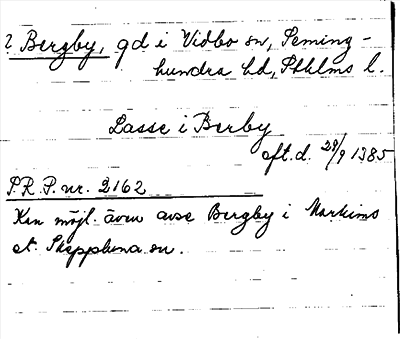 ? Bergby, gd i Vidbo sn, Seming-
hundra hd, Sthlms l.
Lasse i Berby
aft. d. 29/9 1385
S R P. nr. 2162
Kan möjl. även avse Bergby i Markims
el. Skepptuna sn.